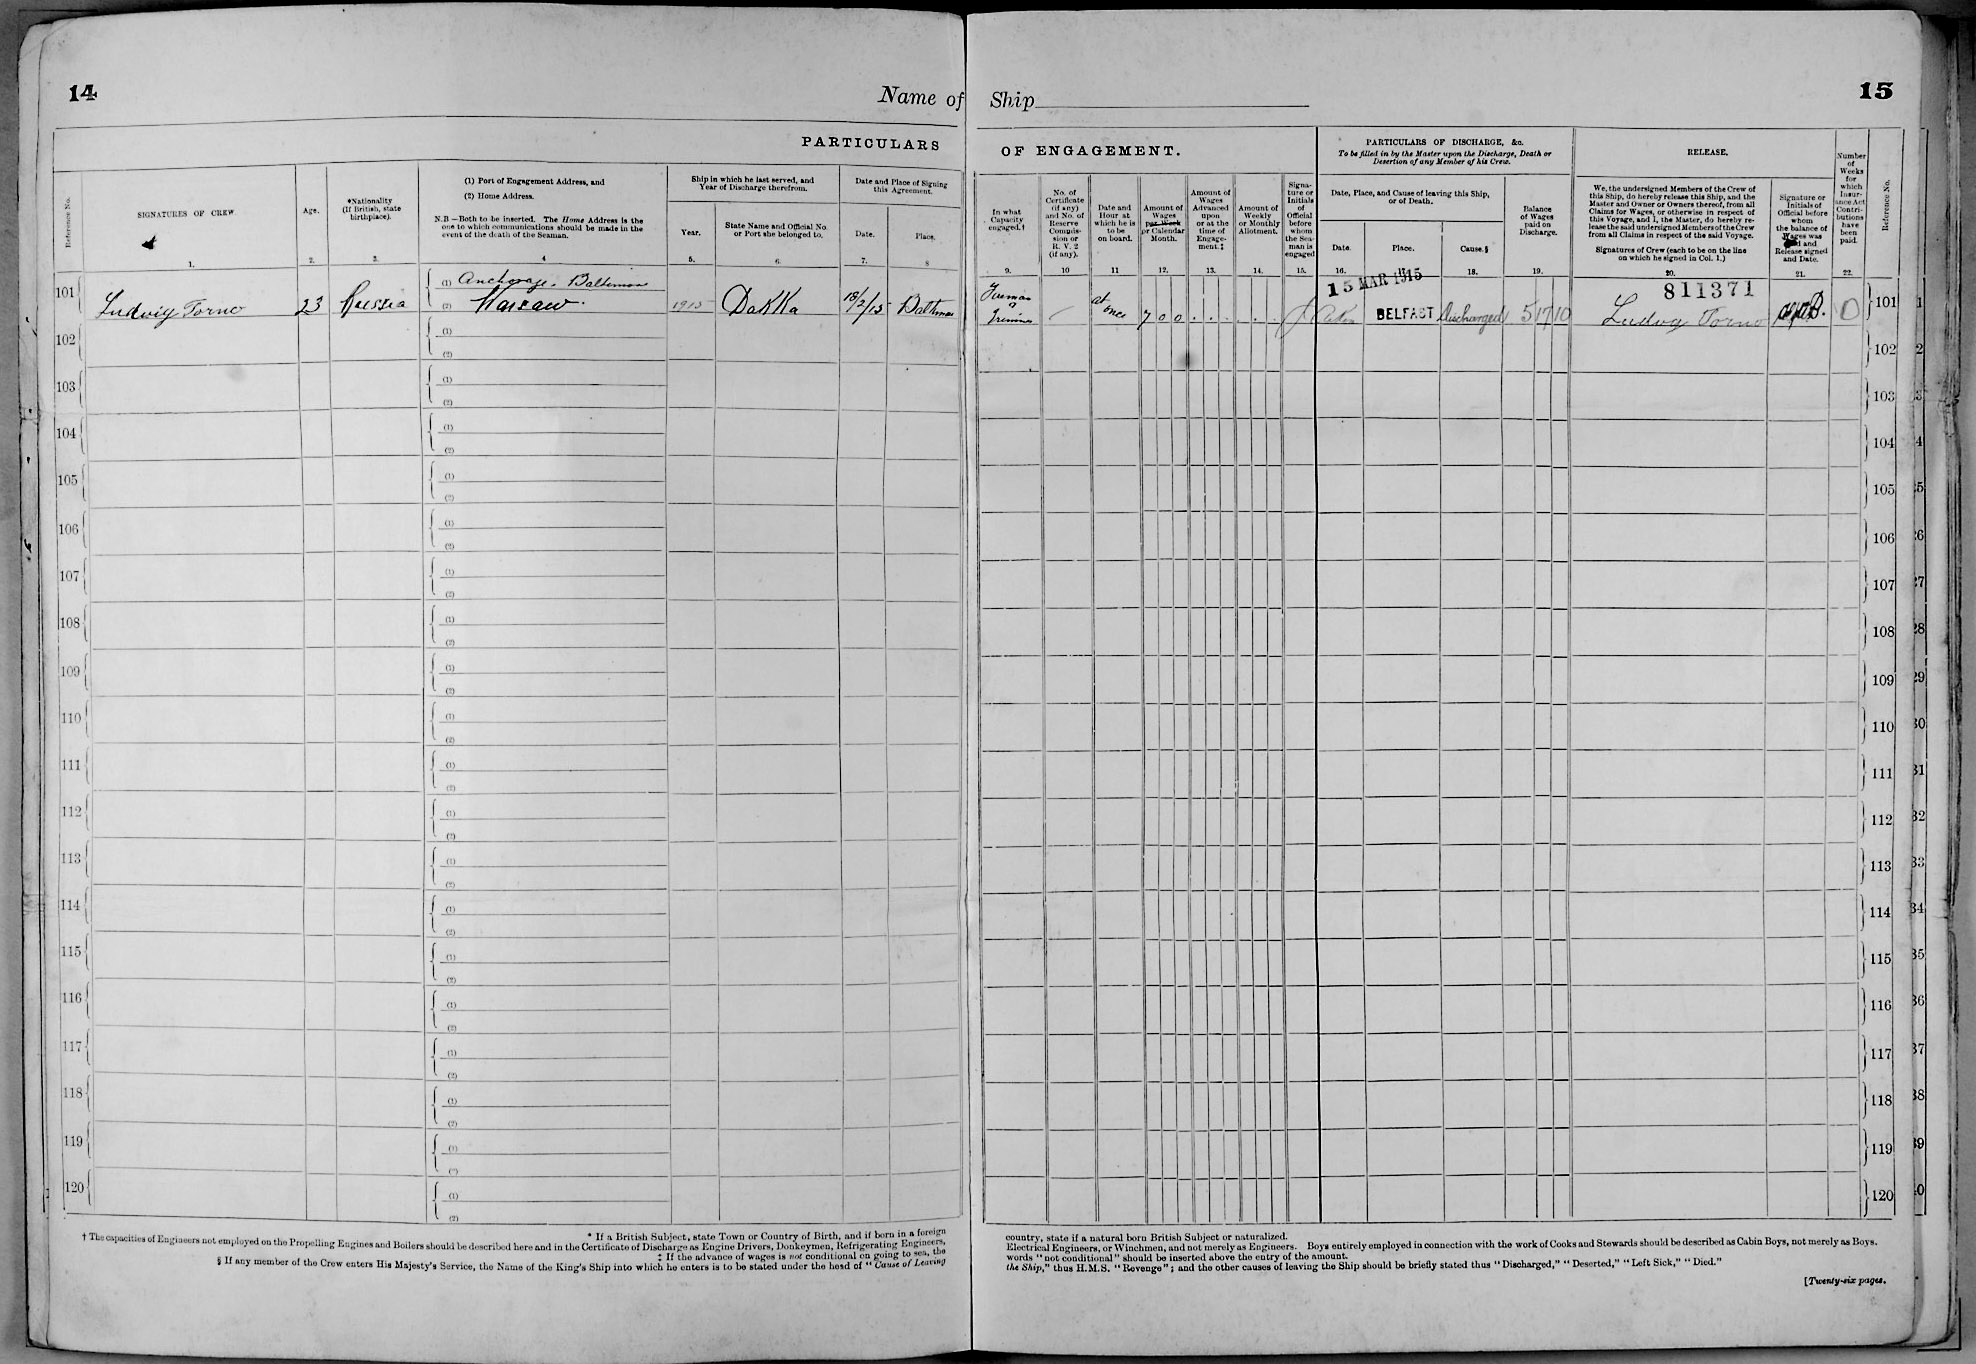 14
Name of Ship
15
PARTICULARS OF ENGAGEMENT.
PARTICULARS OF DISCHARGE, &c.
To be filled in by the Master upon the Discharge, Death or Desertion of any Member of his Crew.
RELEASE.
Reference No.
SIGNATURES OF CREW.
1.
Age.
2.
*Nationality
(If British, state
birthplace).
3.
(1) Port of Engagement Address, and
(2) Home Address.
N.B—Both to be inserted. The Home Address is the
one to which communications should be made in the
event of the death of the Seaman.
4
Ship in which he last served, and
Year of Discharge therefrom.
Year.
5.
State Name and Official No.
or Port she belonged to.
6.
Date and Place of Signing
this Agreement.
Date.
7.
Place.
8
In what
Capacity
engaged.†
9.
No. of
Certificate
(if any)
and No. of
Reserve
Commis-
sion or
R. V. 2
(if any).
10
Date and
Hour at
which he is
to be
on board.
11
Amount of
Wages
per Week
or Calendar
Month.
12.
Amount of
Wages
Advanced
upon
or at the
time of
Engage-
ment.‡
13.
Amount of
Weekly
or Monthly
Allotment.
14.
Signa-
ture or
Initials
of
Official
before
whom
the Sea-
man is
engaged
15.
Date, Place, and Cause of leaving this Ship,
or of Death.
Date.
16.
Place.
17
Cause.§
18.
Balance
of Wages
paid on
Discharge.
19.
We, the undersigned Members of the Crew of
this Ship, do hereby release this Ship, and the
Master and Owner or Owners thereof, from all
Claims for Wages, or otherwise in respect of
this Voyage, and I, the Master, do hereby re-
lease the said undersigned Members of the Crew
from all Claims in respect of the said Voyage.
Signatures of Crew (each to be on the line
on which he signed in Col. 1.)
20.
Signature or
Initials of
Official before
whom
the balance of
Wages was
paid and
Release signed
and Date.
21.
Number
of
Weeks
for
which
Insur-
ance Act
Contri-
butions
have
been
paid.
22.
Reference No.
101
Ludwig Torno
23
Russia
(1) Anchorage. Baltimore
(2) Warsaw.
1915
Dakka
18/2/15
Baltimore
Fireman
&
Trimmer
at
once
7 0 0
15 MAR 1915
BELFAST
Discharged
5 17 10
811371
Ludwig Torno
0
101
102
(1)
(2)
102
103
(1)
(2)
103
104
(1)
(2)
104
105
(1)
(2)
105
106
(1)
(2)
106
107
(1)
(2)
107
108
(1)
(2)
108
109
(1)
(2)
109
110
(1)
(2)
110
111
(1)
(2)
111
112
(1)
(2)
112
113
(1)
(2)
113
114
(1)
(2)
114
115
(1)
(2)
115
116
(1)
(2)
116
117
(1)
(2)
117
118
(1)
(2)
118
119
(1)
119
120
(1)
(2)
120
* If a British Subject, state Town or Country of Birth, and if born in a foreign country, state if a natural born British Subject or naturalized.
† The capacities of Engineers not employed on the Propelling Engines and Boilers should be described here and in the Certificate of Discharge as Engine Drivers, Donkeymen, Refrigerating Engineers, Electrical Engineers, or Winchmen, and not merely as Engineers. Boys entirely employed in connection with the work of Cooks and Stewards should be described as Cabin Boys, not merely as Boys.
‡ If the advance of wages is not conditional on going to sea, the words "not conditional" should be inserted above the entry of the amount.
§ If any member of the Crew enters His Majesty's Service, the Name of the King's Ship into which he enters is to be stated under the head of "Cause of Leaving the Ship," thus H.M.S. "Revenge"; and the other causes of leaving the Ship should be briefly stated thus "Discharged," "Deserted," "Left Sick," "Died."
[Twenty-six pages.